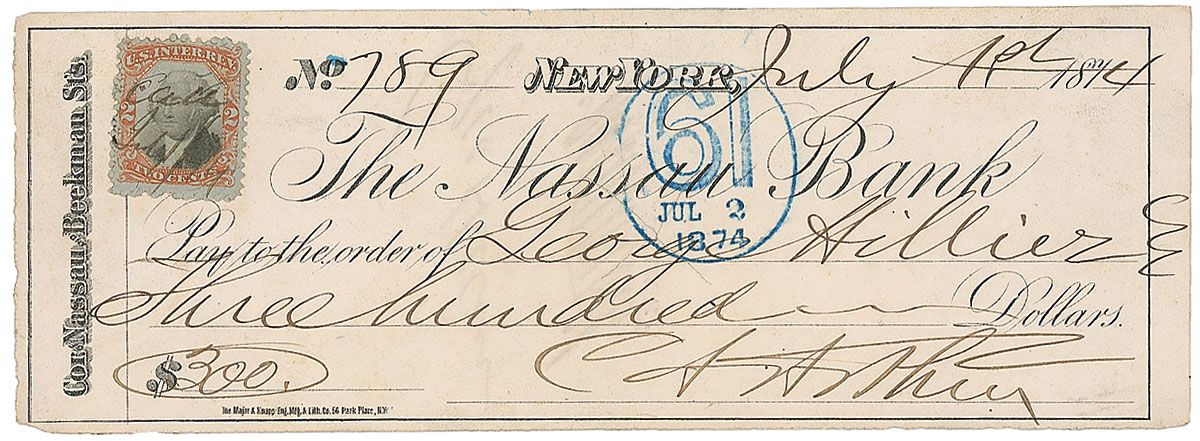 No 789 New York, July 1st 1874
The Nassau Bank
Pay to the order of George Hillier
Three hundred Dollars.
$300.
C A Arthur
Cor. Nassau & Beekman Sts.
U.S. INTER. REV.
2 2
TWO CENTS
61
JUL 2
1874
The Major & Knapp Eng. Mfg. & Lith. Co. 56 Park Place, N.Y.